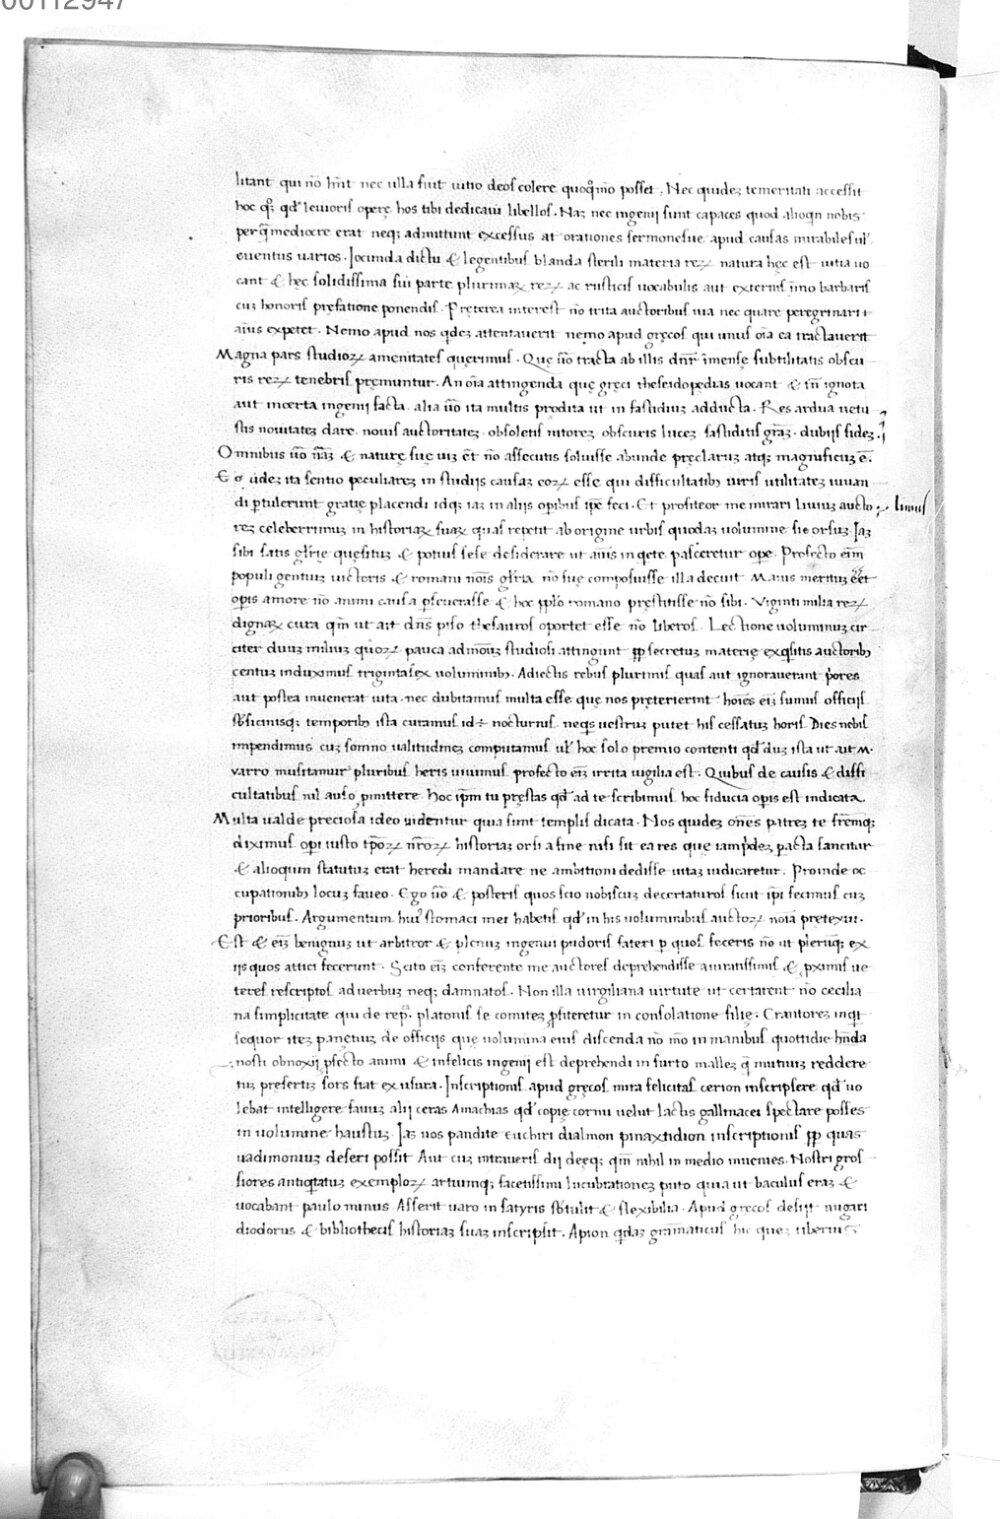 00112947
litant qui nō hn̄t nec ulla fuit uitio deos colere quoq̄ mō posset. Nec quidez temeritati accessit
hoc q̄z qd' leuioris operę hos tibi dedicaui libellos. Naz nec ingenij sunt capaces quod alioqn nobis
per q̄ mediocre erat neqz admittunt excessus at orationes sermonesue apud causas mirabiles ul'
euentus uarios. Iocunda dictu & legentibus blanda sterili materia reꝝ natura hęc est uitia uo
cant & hęc solidissima sui parte plurimaꝝ reꝝ ac rusticis uocabulis aut externis īmo barbaris
cuz honoris pręfatione ponendis. Pręterea interest nō trita auctoribus uia nec quare peregrinari
aīus expetet. Nemo apud nos qdez attentauerit nemo apud gręcos qui unus oīa ea tractauerit
Magna pars studioꝝ amenitates querimus. Quę ūo tracta ab illis dn̄r īmensę subtilitatis obscu
ris reꝝ tenebris pręmuntur. An oīa attingenda quę gręci theseidopedias uocant & tn̄ ignota
aut incerta ingenij facta. alia ūo ita multis prodita ut in fastidiuz adducta. Res ardua uetu
stis nouitatez dare. nouis auctoritatez. obsoletis nitorez. obscuris lucez fastiditis grāz. dubijs fidez.
Omnibus ūo nāz & naturę suę uiz et nō assecutis soluisse abunde pręclaruz atqz magnificuz ē.
E qdez ita sentio peculiarez in studijs causaz eoꝝ esse qui difficultatibꝫ uiris utilitatez iuuan
di p̄tulerunt gratię placendi idqz iaz in alijs opībus ipē feci. Et profiteor me mirari Liuiuz aucto
liuius
rez celeberrimuz in historiaꝝ suaꝝ quas repetit ab origine urbis quodaz uolumine sic orsuz. Iaz
sibi satis glīę quęsituz & potius sese desiderare ut aīus inqete pasceretur ope. Profecto eīm
populi gentiuz uictoris & romani noīs glīa nō suę composuisse illa decuit Maius merituz eēt
opīs amore nō animi causa pseuerasse & hoc pp̄lo romano pręstitisse nō sibi. Viginti milia reꝝ
dignaꝝ cura qm̄ ut ait dn̄s piso thesauros oportet esse nō liberos. Lectione uoluminuz cir
citer duuz miliuz quoꝝ pauca admoduz studiosi attingunt pp̄ secretuz materię exqsitis auctoribꝫ
centuz induximus trigintasex uoluminibꝫ. Adiectis rebus plurimis quas aut ignorauerant p̄ores
aut postea inuenerat uita. nec dubitamus multa esse quę nos pręterierint hoīes eīz sumus officijs
temporibꝫ ista curamus id ÷ nocturnis neqs uestruz putet his cessatuz horis Dies nobis
impendimus cuz somno ualitudinez computamus ul' hoc solo premio contenti qd' duz ista ut ait M.
varro musitamur pluribus horis uiuimus profecto eīz irrita uigilia est. Quibus de causis & diffi
cultatibus nil auso pmittere. Hoc ipm tu pręstas qd' ad te scribimus hoc fiducia opīs est indicata.
Multa ualde preciosa ideo uidentur quia sunt templis dicata. Nos quidez om̄es patrez te frēmqz
diximus opī iusto tp̄oꝝ nr̄oꝝ historiaz orsi a fine nisi sit ea res que iampdez pacta sancitur
& alioquin statutuz erat heredi mandare ne ambitioni dedisse uitaz iudicaretur. Proinde oc
cupationibꝫ locuz faueo. Ego ūo & posteris quos scio nobiscuz decertaturos sicut ip̄i fecimus cuz
prioribus. Argumentum hui' stomaci mei habetis qd' in his uoluminibus auctoꝝ noīa pretexui.
Est & eīz benignuz ut arbitror & plenuz ingenui pudoris fateri p quos feceris nō ut plerīqz ex
ijs quos attici fecerunt. Scito eīz conferente me auctores deprehendisse a iuratissimis & pximis ue
teres rescriptos ad uerbuz neqz damnatos. Non illa uirgiliana uirtute ut certarent nō cecilia
na simplicitate qui de rep̄. platonis se comitez pfiteretur in consolatione filię. Crantorez inqt
sequor itez panętiuz de officijs quę uolumina eius discenda nō mō in manibus quottidie hn̄da
nosti obnoxij pfecto animi & infelicis ingenij est deprehendi in furto mallez q̄ mutuuz reddere
tuz presertiz sors fiat ex usura. Inscriptionis apud gręcos mira felicitas cerion inscripsere qd' uo
lebat intelligere fauuz alij ceras Amachias qd' copię cornu uelut lactis gallinacei spectare posses
in uolumine haustuz. Iaz uos pandite Euchiri dialmon pinaxtidion inscriptionis pp̄ quas
uadimoniuz deseri possit Aut cuz intraueris dij deęqz qm nihil in medio inuenies. Nostri gros
siores antiqtatuz exemploꝝ artiumqz facetissimi lucubrationez puto quia ut baculus eraz &
uocabant paulo minus Asserit uaro in satyris sb'tulit & flexibilia. Apud grecos desijt nugari
diodorus & bibliothecis historiaz suaz inscripsit. Apion qdaz gramaticus hic quez tiberius